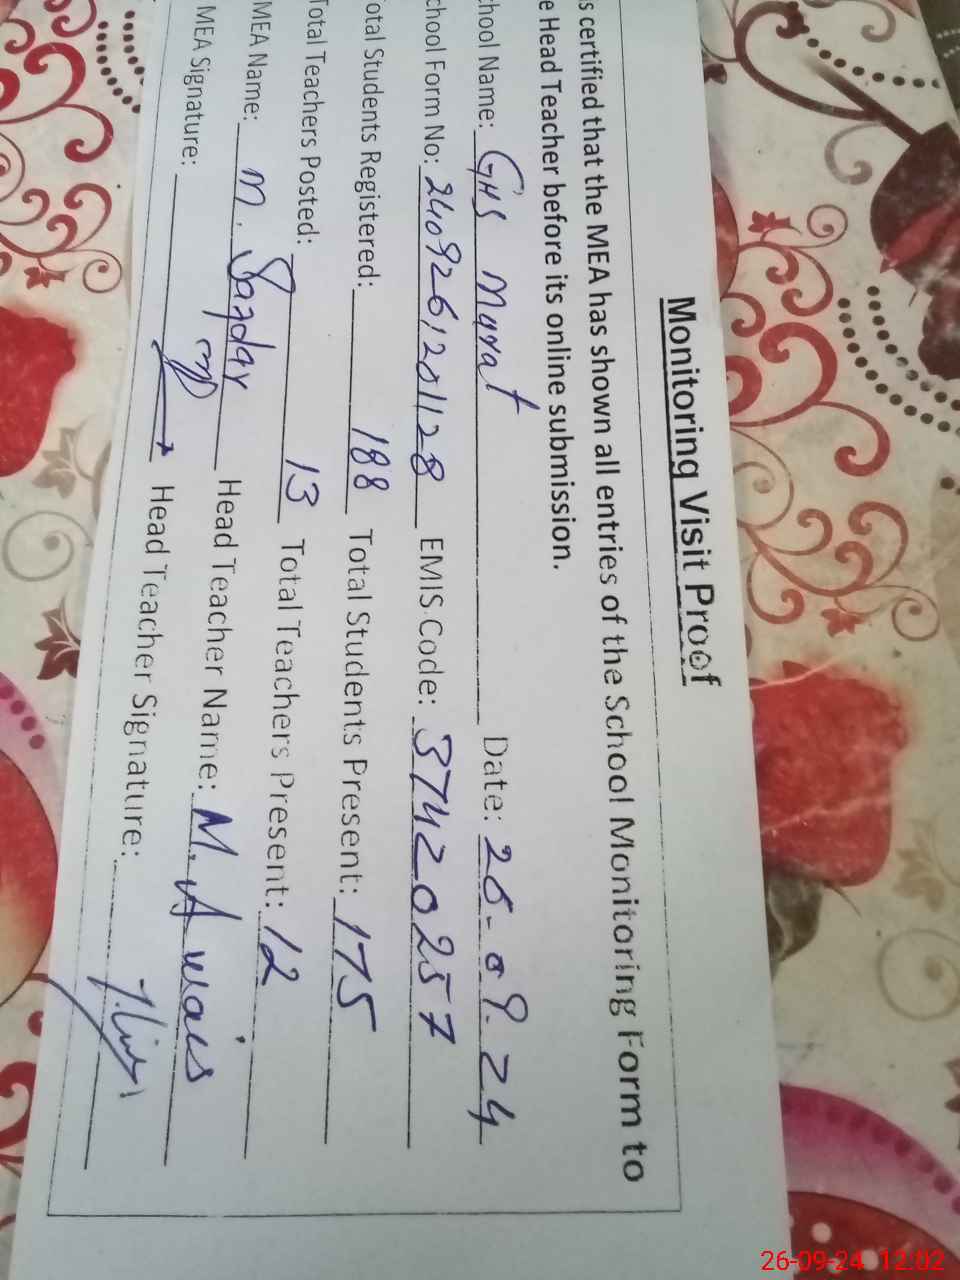 Monitoring Visit Proof
is certified that the MEA has shown all entries of the School Monitoring Form to
e Head Teacher before its online submission.
chool Name: GHS Mayat Date: 26-09-24
chool Form No: 240926120128 EMIS Code: 37420257
otal Students Registered: 188 Total Students Present: 175
Total Teachers Posted: 13 Total Teachers Present: 12
MEA Name: M. Safdar Head Teacher Name: M. Awais
MEA Signature: Head Teacher Signature:
26-09-24 12:02